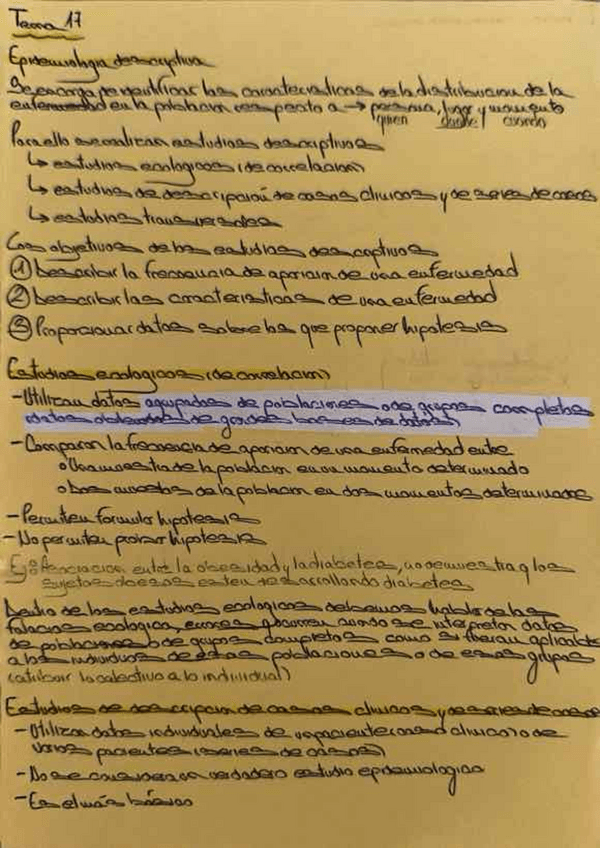 Tema 17
Epidemiologia descriptiva
Se encarga de identificar las caracteristicas de la distribucion de la
enfermedad en la poblacion respecto a → persona, lugar y momento
quien donde cuando
Para ello se realizan estudios descriptivos
↳ estudios ecologicos (de correlacion)
↳ estudios de descripcion de casos clinicos y de series de casos
↳ estudios transversales
Los objetivos de los estudios descriptivos
① Describir la frecuencia de aparicion de una enfermedad
② Describir las caracteristicas de una enfermedad
③ Proporcionar datos sobre los que proponer hipotesis
Estudios ecologicos (de correlacion)
- Utilizan datos agrupados de poblaciones o de grupos completos
(datos obtenidos de grandes bases de datos)
- Comparan la frecuencia de aparicion de una enfermedad entre
o Una muestra de la poblacion en un momento determinado
o Dos muestras de la poblacion en dos momentos determinados
- Permiten formular hipotesis
- No permiten probar hipotesis
Ej: Asociacion entre la obesidad y la diabetes, no demuestra q los
sujetos obesos esten desarrollando diabetes
Dentro de los estudios ecologicos debemos hablar de la
falacia ecologica, errores q ocurren cuando se interpretan datos
de poblaciones o de grupos completos como si fueran aplicables
a los individuos de estas poblaciones o de esos grupos
(atribuir lo colectivo a lo individual)
Estudios de descripcion de casos clinicos y de series de casos
- Utilizan datos individuales de un paciente (caso clinico) o de
varios pacientes (series de casos)
- No se considera un verdadero estudio epidemiologico
- Es el más básico